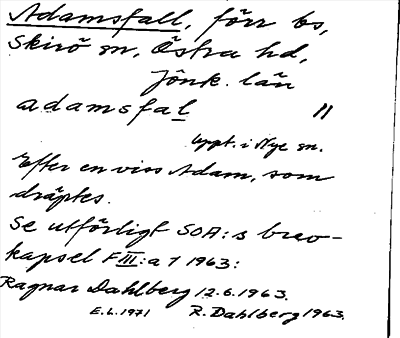 Adamsfall, förr bs,
Skirö sn, Östra hd,
Jönk. län
adamsfal "
uppt. i Nye sn.
Efter en viss Adam, som
dräptes.
Se utförligt SOA:s brev-
kapsel F III:a 1 1963:
Ragnar Dahlberg 12.6.1963.
E.L. 1971 R. Dahlberg 1963.